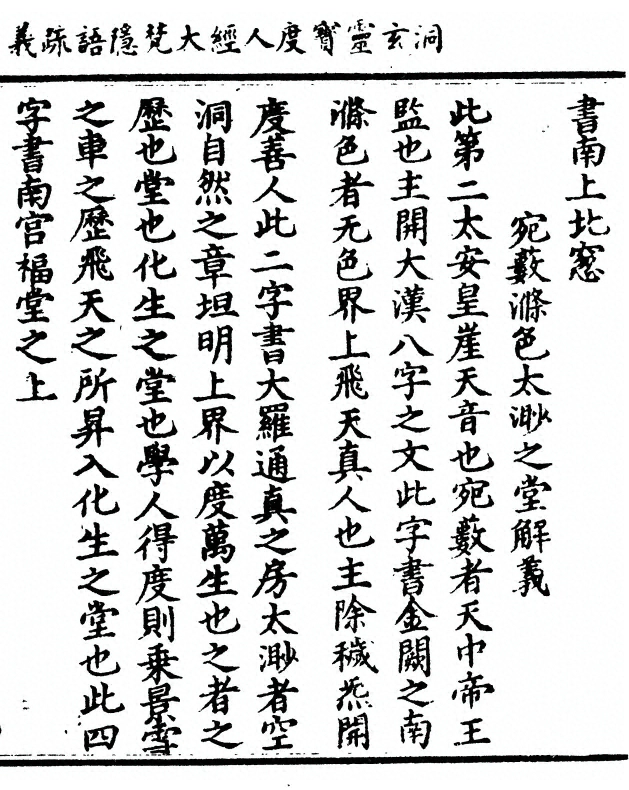 洞玄靈寶度人經大梵隱語疏義
書南上北窓
宛藪滌色太渺之堂解義
此第二太安皇崖天音也宛藪者天中帝王
監也主開大漢八字之文此字書金闕之南
滌色者无色界上飛天真人也主除穢炁開
度善人此二字書大羅通真之房太渺者空
洞自然之章坦明上界以度萬生也之者之
歷也堂也化生之堂也學人得度則乗景雲
之車之歷飛天之所昇入化生之堂也此四
字書南宫福堂之上